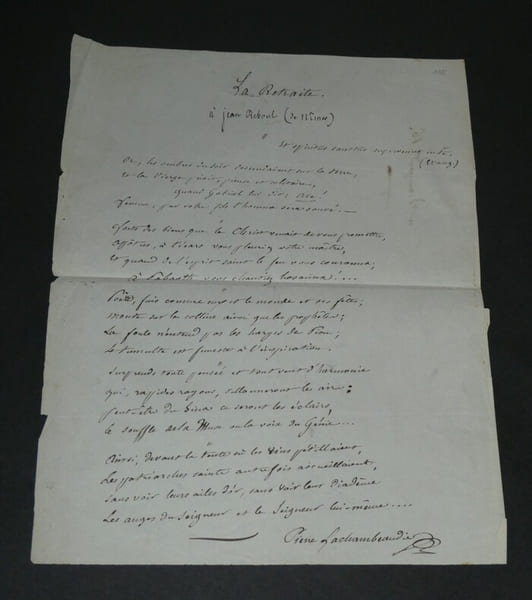 La Retraite.
à Jean Reboul (de Nismes)
et spiritus sanctus superveniet in te.
(Evang.)
Or, les ombres du soir descendaient sur la terre,
et la Vierge priait, pieuse et solitaire,
quand Gabriel lui dit: ave!
femme, par votre fils l'homme sera sauvé. —
que le Christ venait de vous promettre,
apôtres, à l'écart vous pleuriez votre maître,
et quand de l'esprit saint le feu vous couronna,
vous chantiez hosanna!...
Poète, fuis comme eux et le monde et ses fêtes;
monte sur la colline ainsi que les prophètes;
La foule n'entend pas les harpes de Sion;
Le tumulte est funeste à l'inspiration.
Surprends toute pensée et tout vent d'harmonie
qui, rapides rayons, sillonneront les airs:
peut-être du Sina ce seront les éclairs,
le souffle de la Muse ou la voix du Génie...
Ainsi, devant la tente où les vins pétillaient,
Les patriarches saints autrefois accueillaient,
sans voir leurs ailes d'or, sans voir leur diadème
Les anges du Seigneur et le Seigneur lui-même....
Pierre Lachambeaudie